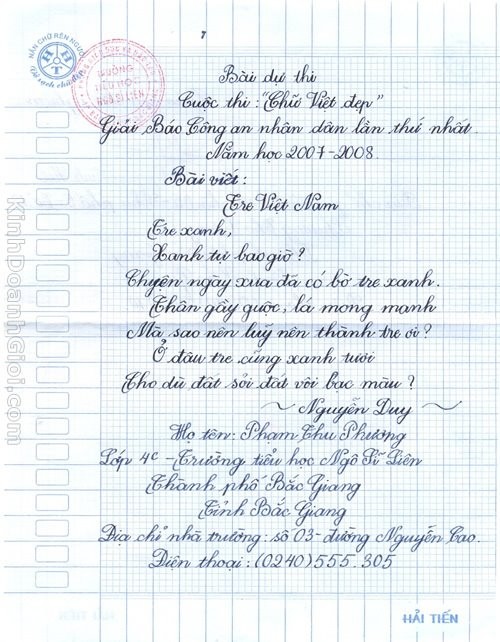 NẮN CHỮ RÈN NGƯỜI
H T
Vở sạch chữ đẹp
TRƯỜNG
TIỂU HỌC
NGÔ SĨ LIÊN
Bài dự thi
Cuộc thi: "Chữ Việt đẹp"
Giải Báo Công an nhân dân lần thứ nhất.
Năm học 2007-2008.
Bài viết:
Tre Việt Nam
Tre xanh,
Xanh tự bao giờ?
Chuyện ngày xưa đã có bờ tre xanh.
Thân gầy guộc, lá mong manh
Mà sao nên luỹ nên thành tre ơi?
Ở đâu tre cũng xanh tươi
Cho dù đất sỏi đất vôi bạc màu?
~ Nguyễn Duy ~
Họ tên: Phạm Thu Phương
Lớp 4c - Trường tiểu học Ngô Sĩ Liên
Thành phố Bắc Giang
Tỉnh Bắc Giang
Địa chỉ nhà trường: số 03 - đường Nguyễn Cao.
Điện thoại: (0240) 555.305
HẢI TIẾN
KinhDoanhGioi.com